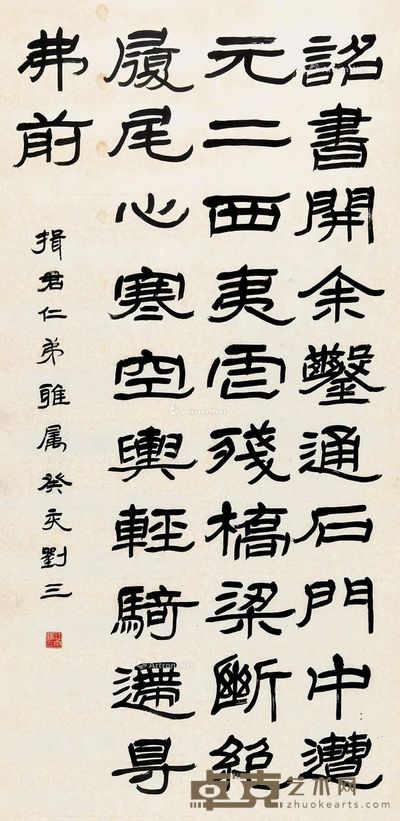 詔書開余鑿通石門中遭
元二西夷虐殘橋梁斷絕
履尾心寒空輿輕騎遰㝵
弗前
揖君仁弟雅属癸亥劉三
Artron.Net
卓克艺术网
zhuokearts.com